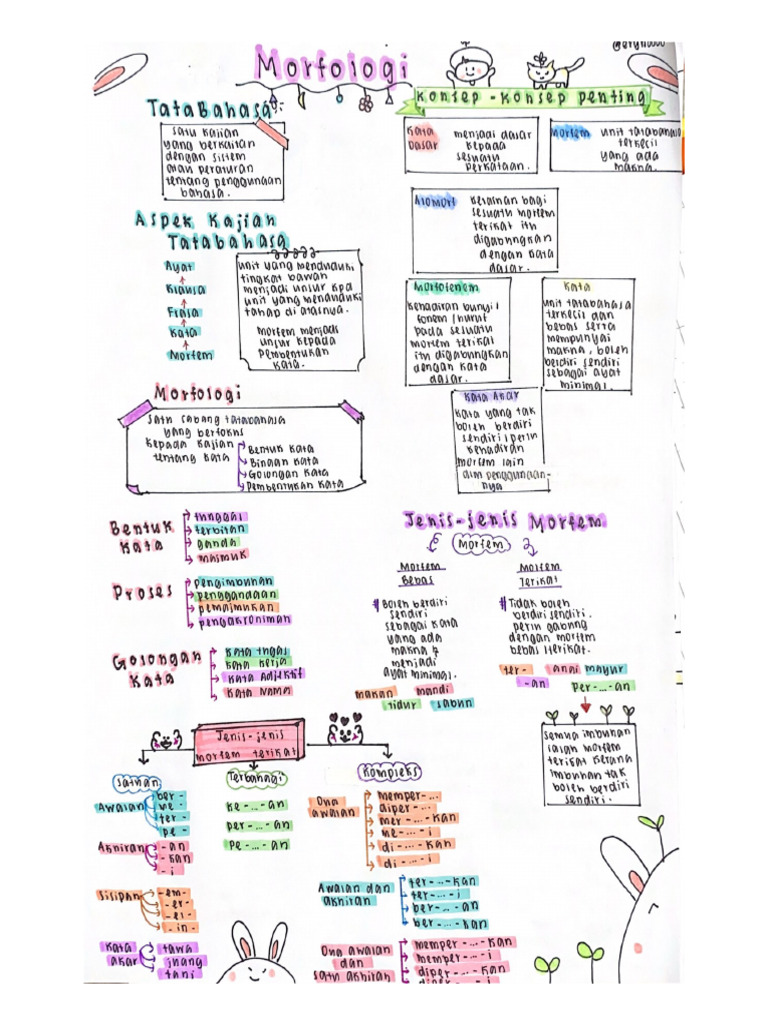 Morfologi
TataBahasa:
satu kajian
yang berkaitan
dengan sistem
atau peraturan
tentang penggunaan
bahasa.
Aspek Kajian
Tatabahasa
Ayat
Klausa
Frasa
Kata
Morfem
unit yang menduduki
tingkat bawah
menjadi unsur kpd
unit yang menduduki
tahap di atasnya.
morfem menjadi
unsur kepada
pembentukan
kata.
Morfologi
satu cabang tatabahasa
yang berfokus
kepada kajian
tentang kata
Bentuk kata
Binaan kata
Golongan kata
Pembentukan kata
Konsep - konsep penting
Kata
Dasar
menjadi dasar
kepada
sesuatu
perkataan.
Morfem
unit tatabahasa
terkecil
yang ada
makna.
Alomorf
kelainan bagi
sesuatu morfem
terikat itu
digabungkan
dengan kata
dasar.
Morfofonem
kehadiran bunyi/
fonem/huruf
pada sesuatu
morfem terikat
itu digabungkan
dengan kata
dasar.
Kata
unit tatabahasa
terkecil dan
bebas serta
mempunyai
makna, boleh
berdiri sendiri
sebagai ayat
minimal.
Kata Akar
kata yang tak
boleh berdiri
sendiri, perlu
kehadiran
morfem lain
dlm penggunaan-
nya
Bentuk
kata
tunggal
terbitan
ganda
majmuk
Proses
pengimbuhan
penggandaan
pemajmukan
pengakroniman
Golongan
kata
kata tugas
kata kerja
kata Adjektif
kata Nama
Jenis-jenis Morfem
Morfem
Morfem
Bebas
# Boleh berdiri
sendiri
sebagai kata
yang ada
makna &
menjadi
ayat minimal.
makan
mandi
tidur
sabun
Morfem
Terikat
# Tidak boleh
berdiri sendiri.
perlu gabung
dengan morfem
bebas/terikat.
ter-
anai
mayur
-an
per-...-an
semua imbuhan
ialah morfem
terikat kerana
imbuhan tak
boleh berdiri
sendiri.
Jenis-jenis
morfem terikat
satuan
Awalan
ber-
ter-
pe-
Akhiran
-an
-kan
-i
Sisipan
-em-
-er-
-el-
-in-
kata
akar
tawa
juang
tani
Terbahagi
ke-...-an
per-...-an
pe-...-an
Kompleks
Dua
awalan
memper-...
diper-...
me-...-i
di-...-kan
di-...-i
Awalan dan
akhiran
ter-...-kan
ter-...-i
ber-...-an
ber-...-kan
Dua awalan
dan
satu akhiran
memper-...-kan
memper-...-i
diper-...-kan